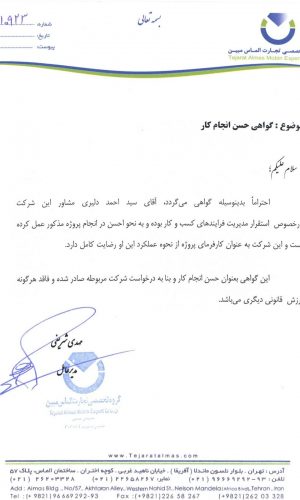 بسمه تعالی
شماره:
تاریخ:
پیوست:
تخصصی تجارت الماس مبین
Tejarat Almas Mobin Expert
وضوع : گواهی حسن انجام کار
سلام علیکم؛
احتراماً بدینوسیله گواهی می‌گردد، آقای سید احمد دلیری مشاور این شرکت
رخصوص استقرار مدیریت فرایندهای کسب و کار بوده و به نحو احسن در انجام پروژه مذکور عمل کرده
ست و این شرکت به عنوان کارفرمای پروژه از نحوه عملکرد این او رضایت کامل دارد.
این گواهی بعنوان حسن انجام کار و بنا به درخواست شرکت مربوطه صادر شده و فاقد هرگونه
رزش قانونی دیگری می‌باشد.
مهدی شریفی
مدیرعامل
گروه تخصصی تجارت الماس مبین
www.Tejaratalmas.com
آدرس : تهران . بلوار نلسون ماندلا ( آفریقا ) . خیابان ناهید غربی . کوچه اختران . ساختمان الماس، پلاک ۵۷
تلفن: ۹۳-۹۶۶۶۹۲۹۲ (۰۲۱) نمابر: ۲۲۶۵۸۲۶۷ (۰۲۱) کدپستی:
Add : Almas Bldg ., No/57, Akhtaran Alley, Western Nahid St, Nelson Mandela (Africa) Blve, Tehran, Iran
Tel: (+ 9821) 96 669 292-93 Fax: (+9821) 226 58 267